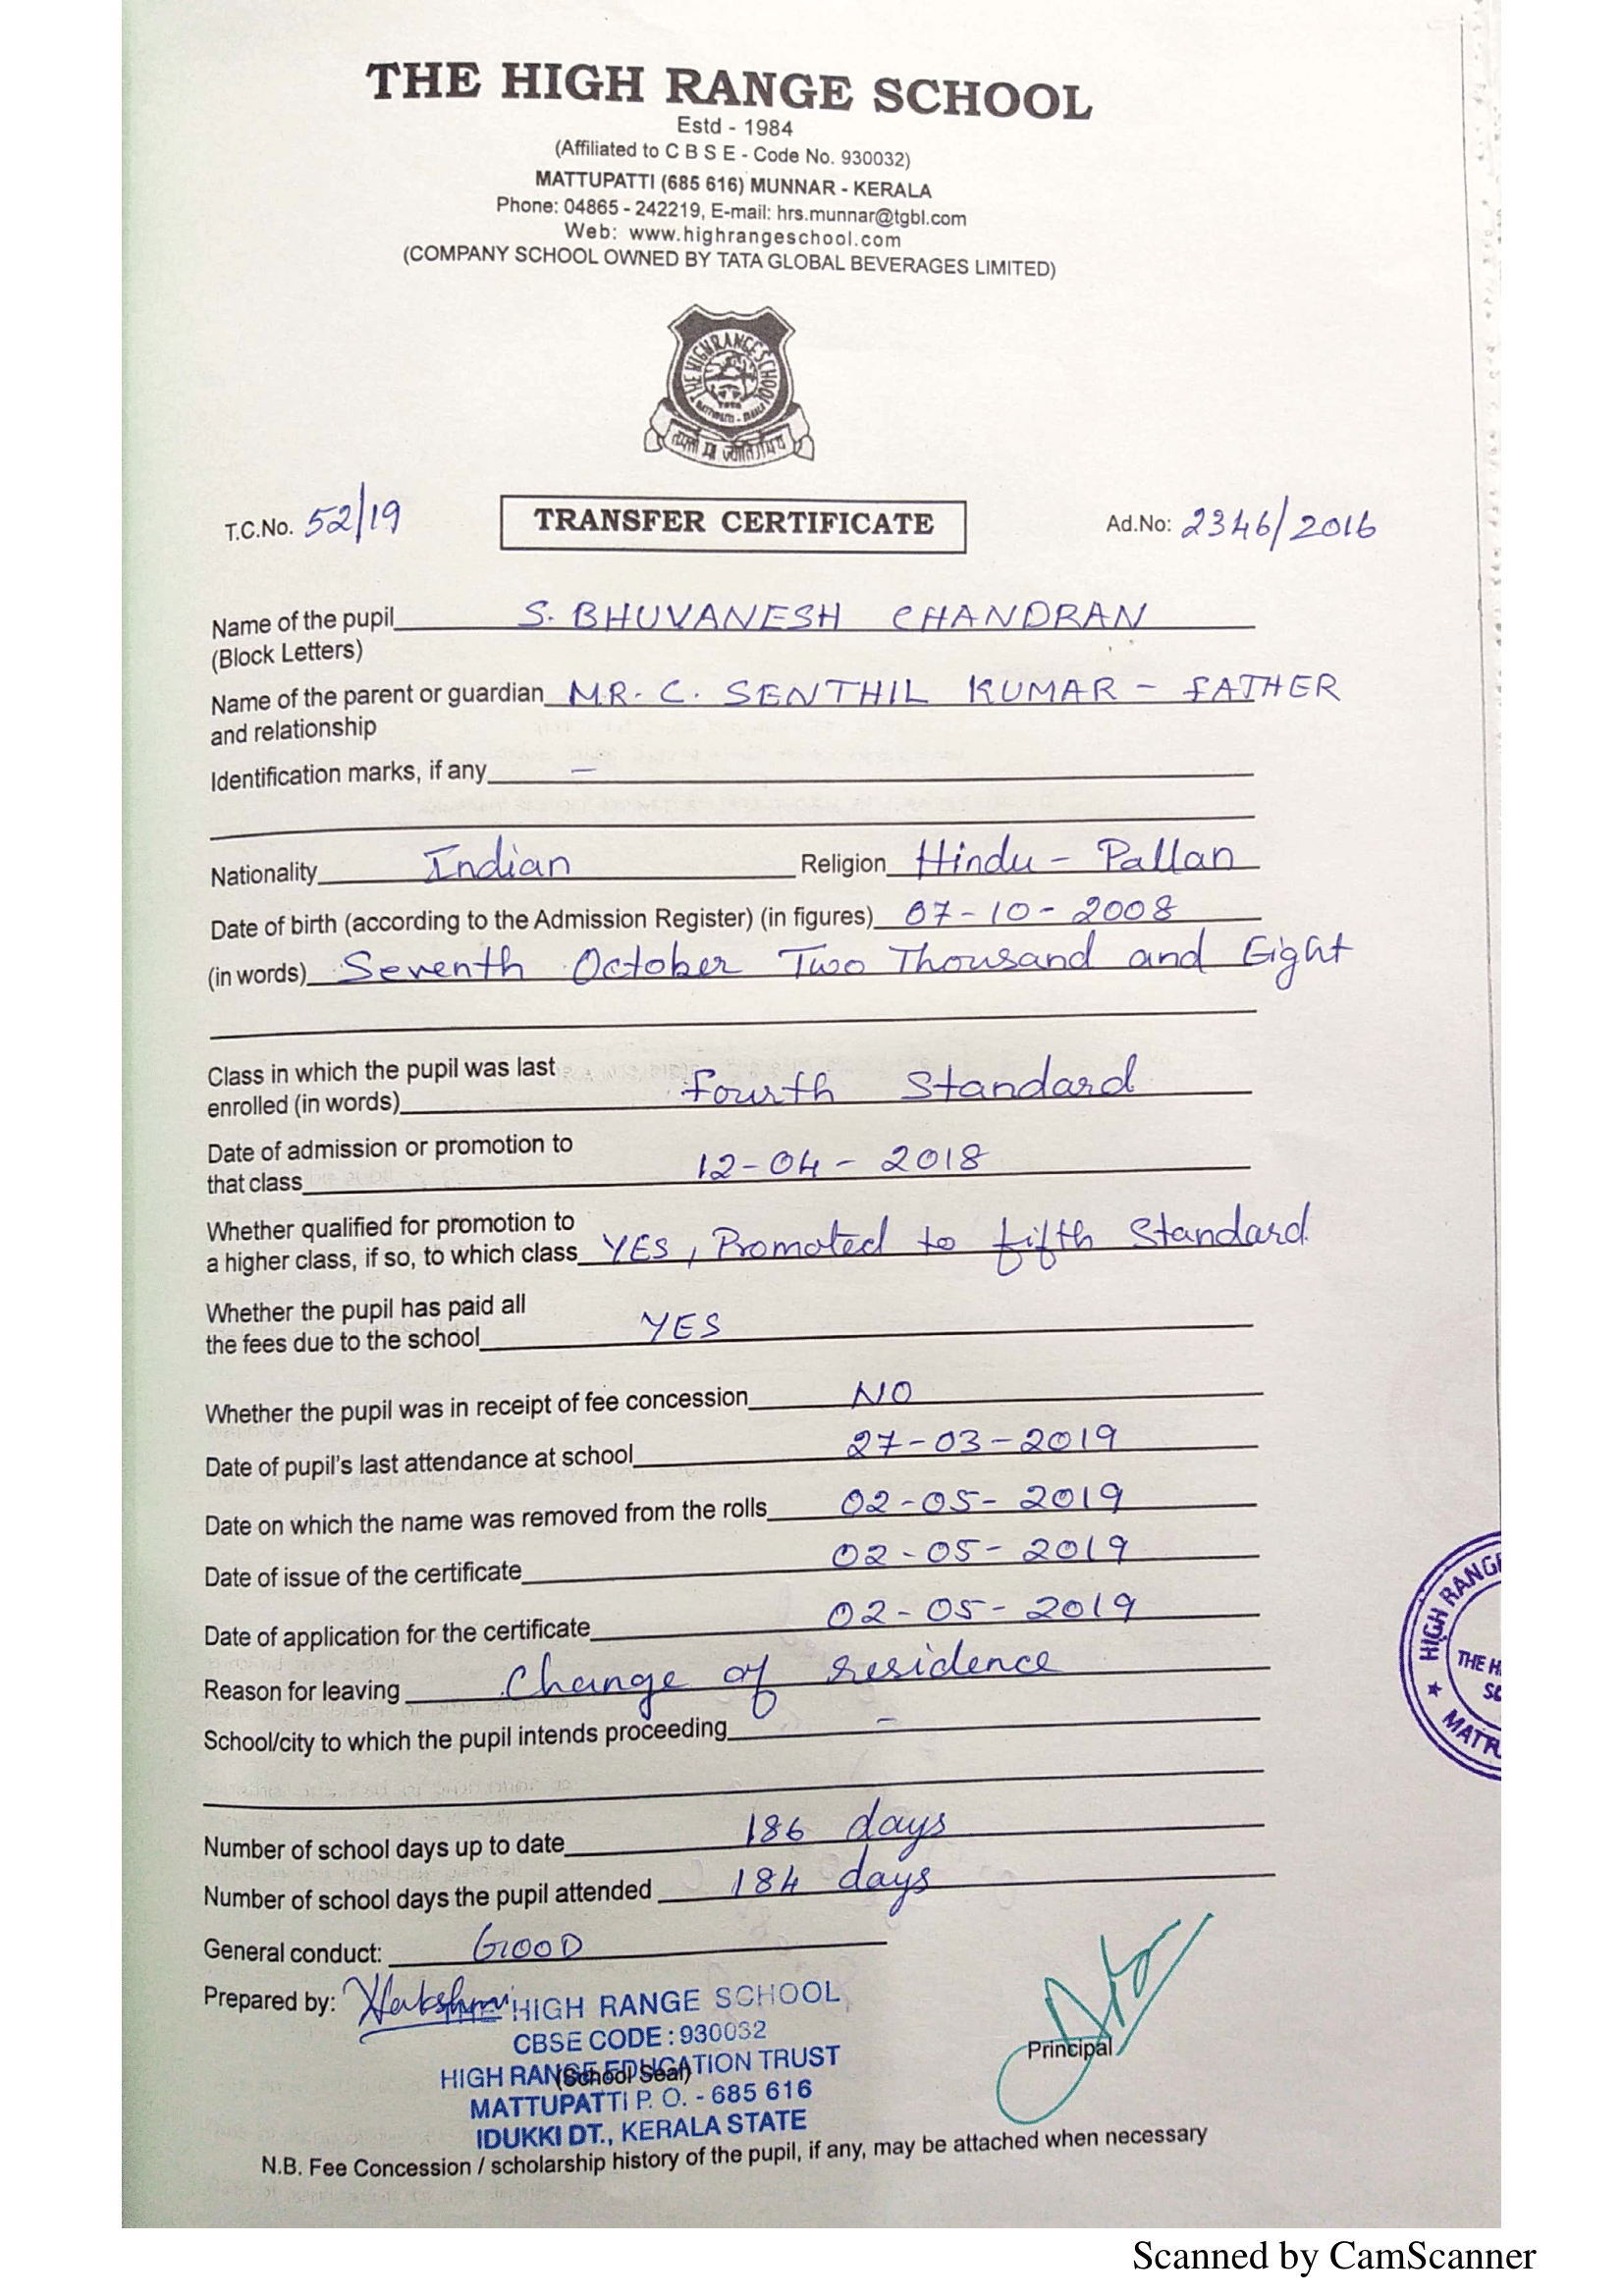 THE HIGH RANGE SCHOOL
Estd - 1984
(Affiliated to C B S E - Code No. 930032)
MATTUPATTI (685 616) MUNNAR - KERALA
Phone: 04865 - 242219, E-mail: hrs.munnar@tgbl.com
Web: www.highrangeschool.com
(COMPANY SCHOOL OWNED BY TATA GLOBAL BEVERAGES LIMITED)
THE HIGH RANGE SCHOOL
T.C.No. 52/19 TRANSFER CERTIFICATE Ad.No: 2346/2016
Name of the pupil S. BHUVANESH CHANDRAN
(Block Letters)
Name of the parent or guardian MR. C. SENTHIL KUMAR - FATHER
and relationship
Identification marks, if any -
Nationality Indian Religion Hindu - Pallan
Date of birth (according to the Admission Register) (in figures) 07-10-2008
(in words) Seventh October Two Thousand and Eight
Class in which the pupil was last
enrolled (in words) Fourth Standard
Date of admission or promotion to
that class 12-04-2018
Whether qualified for promotion to
a higher class, if so, to which class YES, Promoted to Fifth Standard
Whether the pupil has paid all
the fees due to the school YES
Whether the pupil was in receipt of fee concession NO
Date of pupil's last attendance at school 27-03-2019
Date on which the name was removed from the rolls 02-05-2019
Date of issue of the certificate 02-05-2019
Date of application for the certificate 02-05-2019
Reason for leaving Change of residence
School/city to which the pupil intends proceeding -
HIGH RANGE
THE H
SC
★ MATTU
Number of school days up to date 186 days
Number of school days the pupil attended 184 days
General conduct: GOOD
Prepared by:
THE HIGH RANGE SCHOOL
CBSE CODE : 930032
HIGH RANGE EDUCATION TRUST
(School Seal)
Principal
MATTUPATTI P. O. - 685 616
IDUKKI DT., KERALA STATE
N.B. Fee Concession / scholarship history of the pupil, if any, may be attached when necessary
Scanned by CamScanner